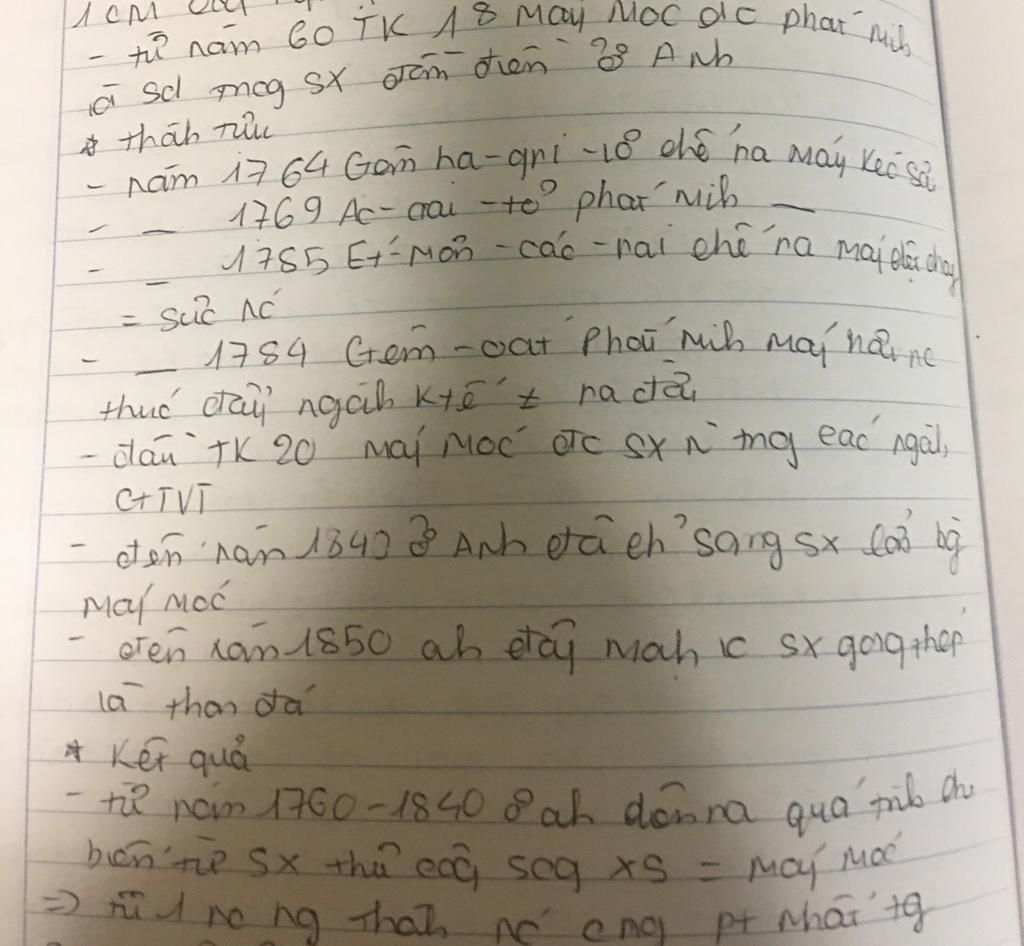 1 CM
- từ năm 60 TK 18 máy móc đc phát mih
và sd trog sx đầu tiên ở Anh
* thàh tựu
- năm 1764 Gêm ha-gri-vơ chế ra máy kéo sợi
- _ 1769 Ac-crai-tơ phát mih _
- _ 1785 Ét-mơn-các-rai chế ra máy dệt chạy
= sức nc
- _ 1784 Gêm-oat phát mih máy hơi nc
thúc đẩy ngàh ktế ≠ ra đời
- đầu TK 20 máy móc đc sx n` trog các ngàh,
GTVT
- đến năm 1840 ở Anh đã ch' sang sx lớn bg
máy móc
- đến năm 1850 ah đẩy mạh sx gang thép
là than đá
* Kết quả
- từ năm 1760-1840 ở ah diễn ra quá trih ch
biến từ sx thủ côg sag xs = máy móc
=> từ 1 nc ng thàh nc cng pt nhất tg